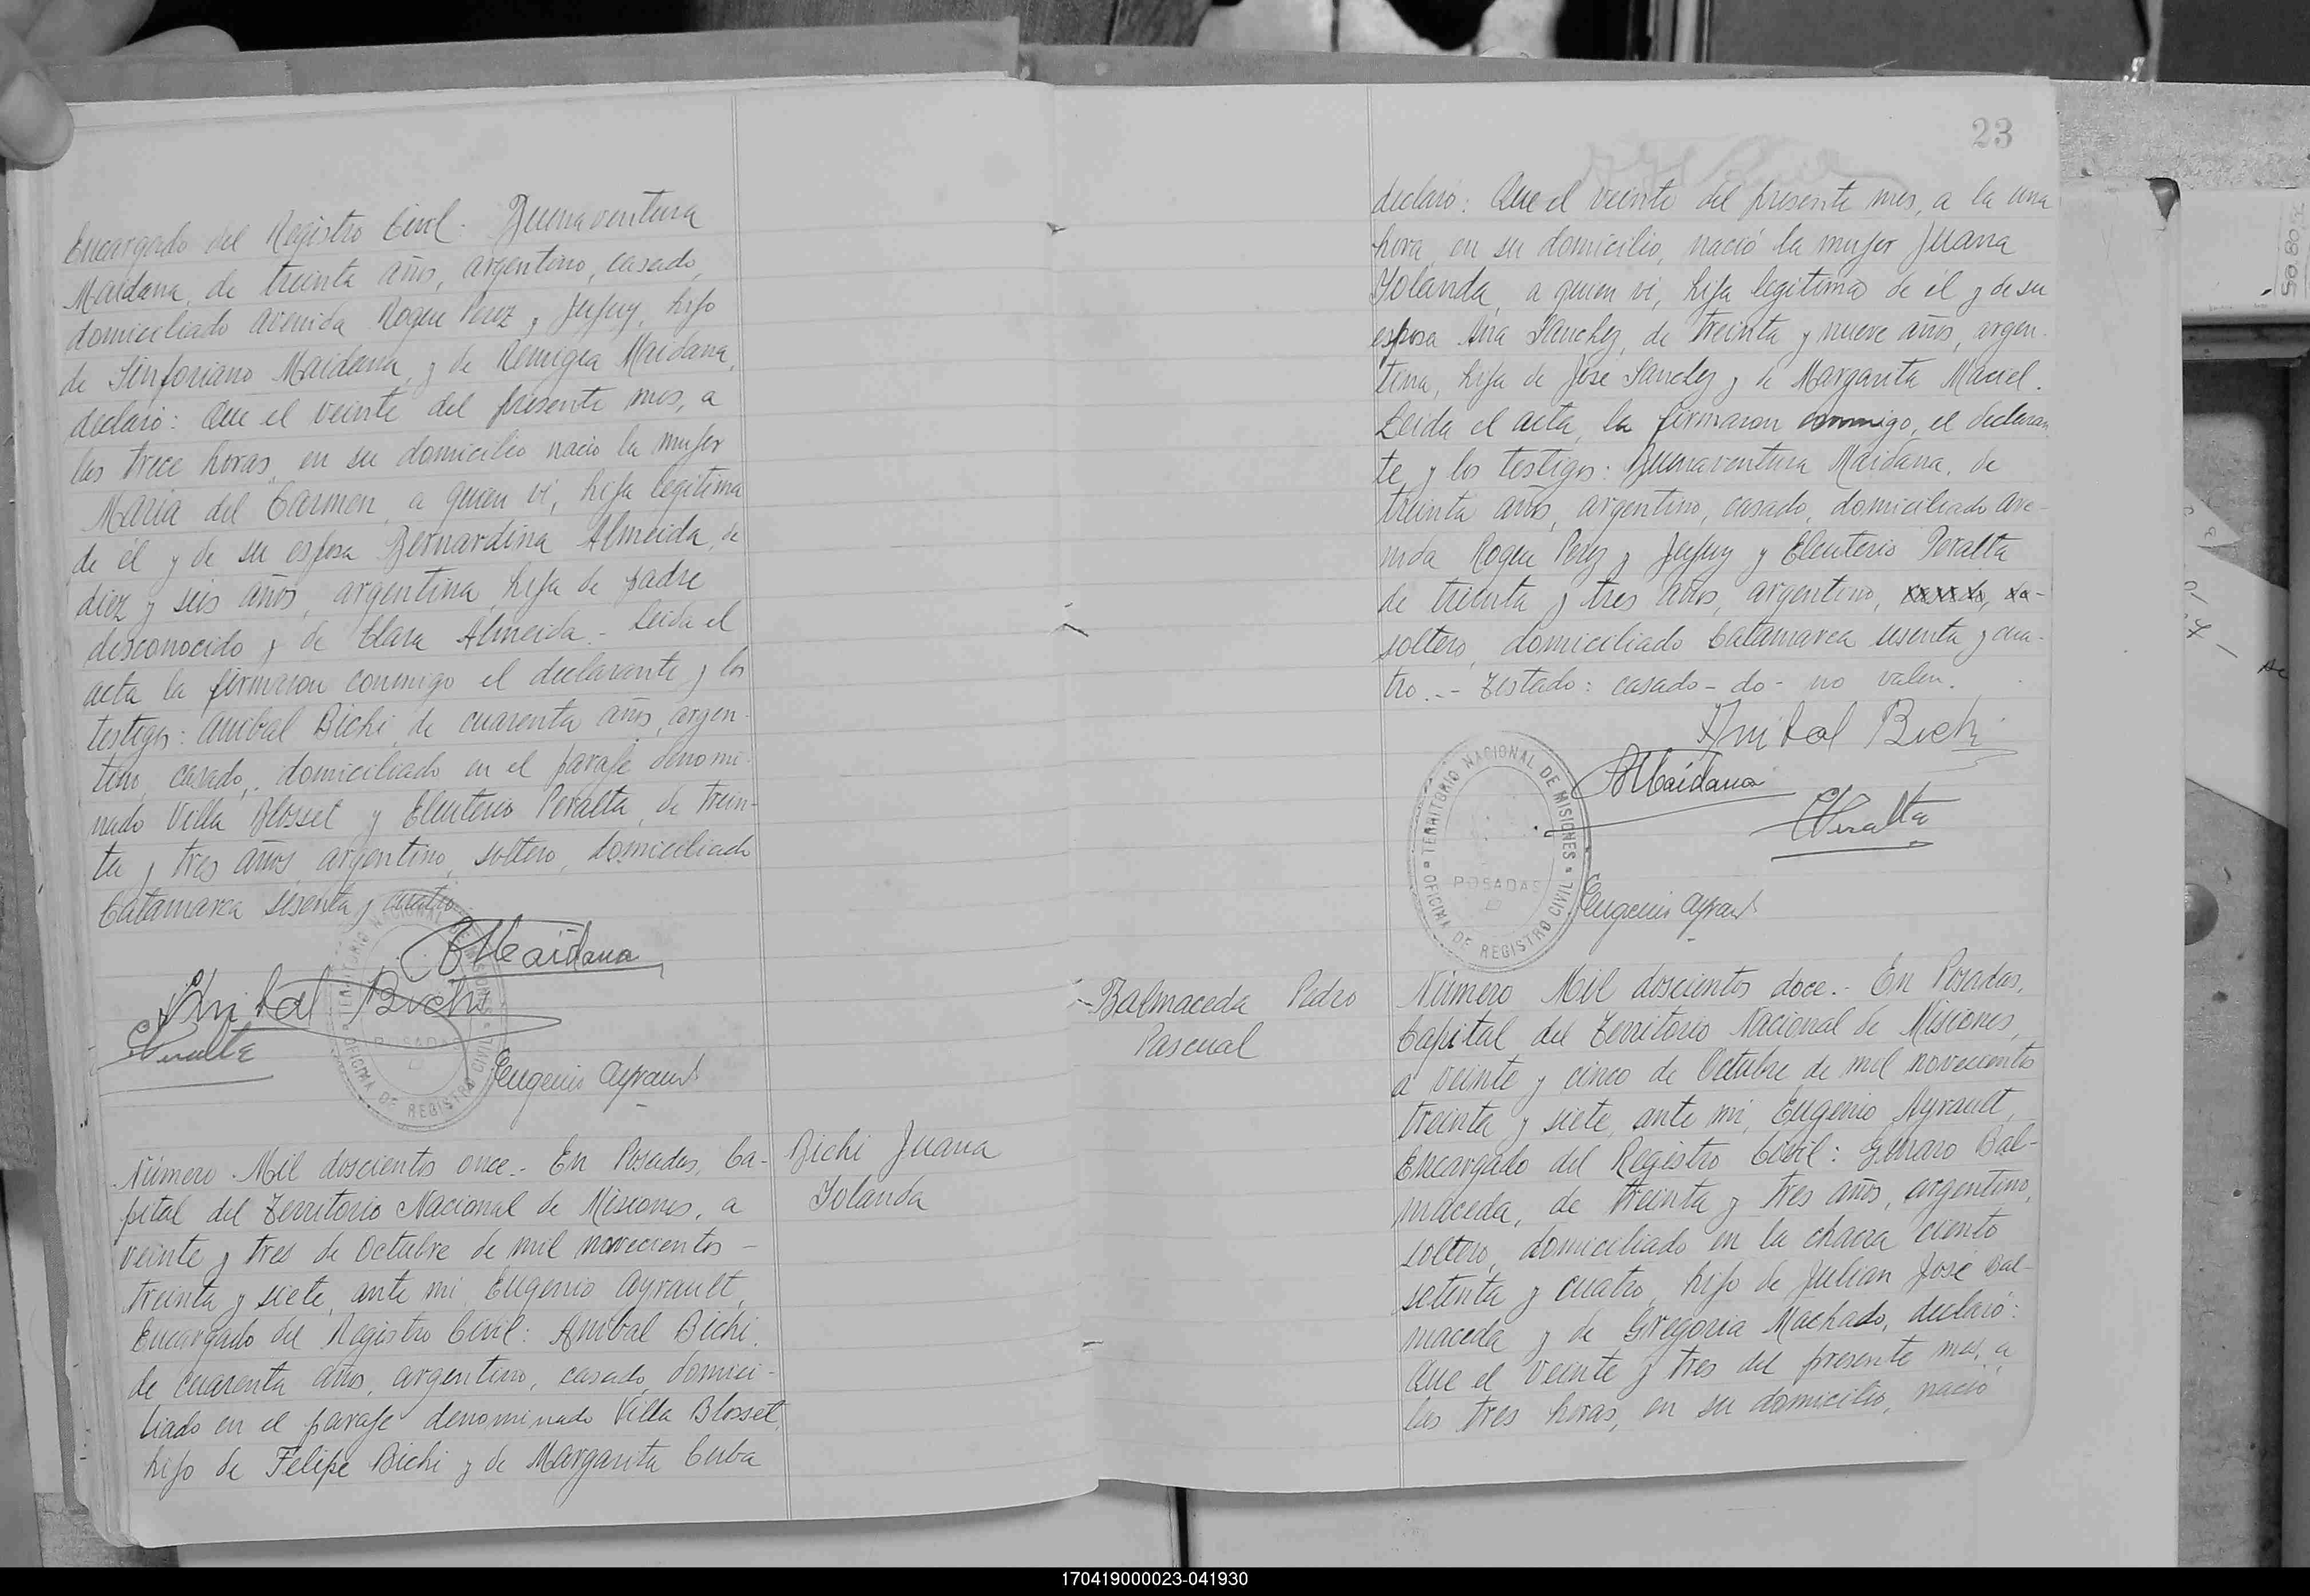 Encargado del Registro Civil. Buenaventura
Maidana, de treinta años, argentino, casado,
domiciliado avenida Roque Perez y Jujuy, hijo
de Sinforiano Maidana, y de Remigia Maidana,
declaró: Que el veinte del presente mes, a
las trece horas, en su domicilio nació la mujer
Maria del Carmen, a quien vi, hija legitima
de él y de su esposa Bernardina Almeida, de
diez y seis años, argentina, hija de padre
desconocido y de Clara Almeida.- Leida el
acta la firmaron conmigo el declarante y los
testigos: Anibal Bichi, de cuarenta años, argen-
tino, casado, domiciliado en el paraje denomi-
nado Villa Blosset y Eleuterio Peralta, de trein-
ta y tres años, argentino, soltero, domiciliado
Catamarca sesenta y cuatro.
BMaidana
Anibal Bichi
EPeralta
Eugenio Ayrault
TERRITORIO NACIONAL DE MISIONES
POSADAS
OFICINA DE REGISTRO CIVIL
Número Mil doscientos once.- En Posadas, Ca-
pital del Territorio Nacional de Misiones, a
veinte y tres de Octubre de mil novecientos -
treinta y siete, ante mi, Eugenio Ayrault,
Encargado del Registro Civil: Anibal Bichi,
de cuarenta años, argentino, casado, domici-
liado en el paraje denominado Villa Blosset,
hijo de Felipe Bichi y de Margarita Cuba
Bichi Juana
Yolanda
23
declaró: Que el veinte del presente mes, a la una
hora, en su domicilio, nació la mujer Juana
Yolanda, a quien vi, hija legitima de él y de su
esposa Ana Sanchez, de treinta y nueve años, argen-
tina, hija de José Sanchez y de Margarita Maciel.
Leida el acta, la firmaron conmigo, el declaran
te y los testigos: Buenaventura Maidana, de
treinta años, argentino, casado, domiciliado ave-
nida Roque Perez y Jujuy y Eleuterio Peralta
de treinta y tres años, argentino, casado, do-
soltero, domiciliado Catamarca sesenta y cua-
tro.-- Testado: casado- do- no valen.
Anibal Bichi
BMaidana
EPeralta
Eugenio Ayrault
TERRITORIO NACIONAL DE MISIONES
POSADAS
OFICINA DE REGISTRO CIVIL
Balmaceda Pedro
Pascual
Número Mil doscientos doce.- En Posadas,
Capital del Territorio Nacional de Misiones,
a veinte y cinco de Octubre de mil novecientos
treinta y siete, ante mi, Eugenio Ayrault,
Encargado del Registro Civil: Genaro Bal-
maceda, de treinta y tres años, argentino,
soltero, domiciliado en la chacra ciento
setenta y cuatro, hijo de Julian José Bal-
maceda y de Gregoria Machado, declaró:
Que el veinte y tres del presente mes, a
las tres horas, en su domicilio, nació
170419000023-041930